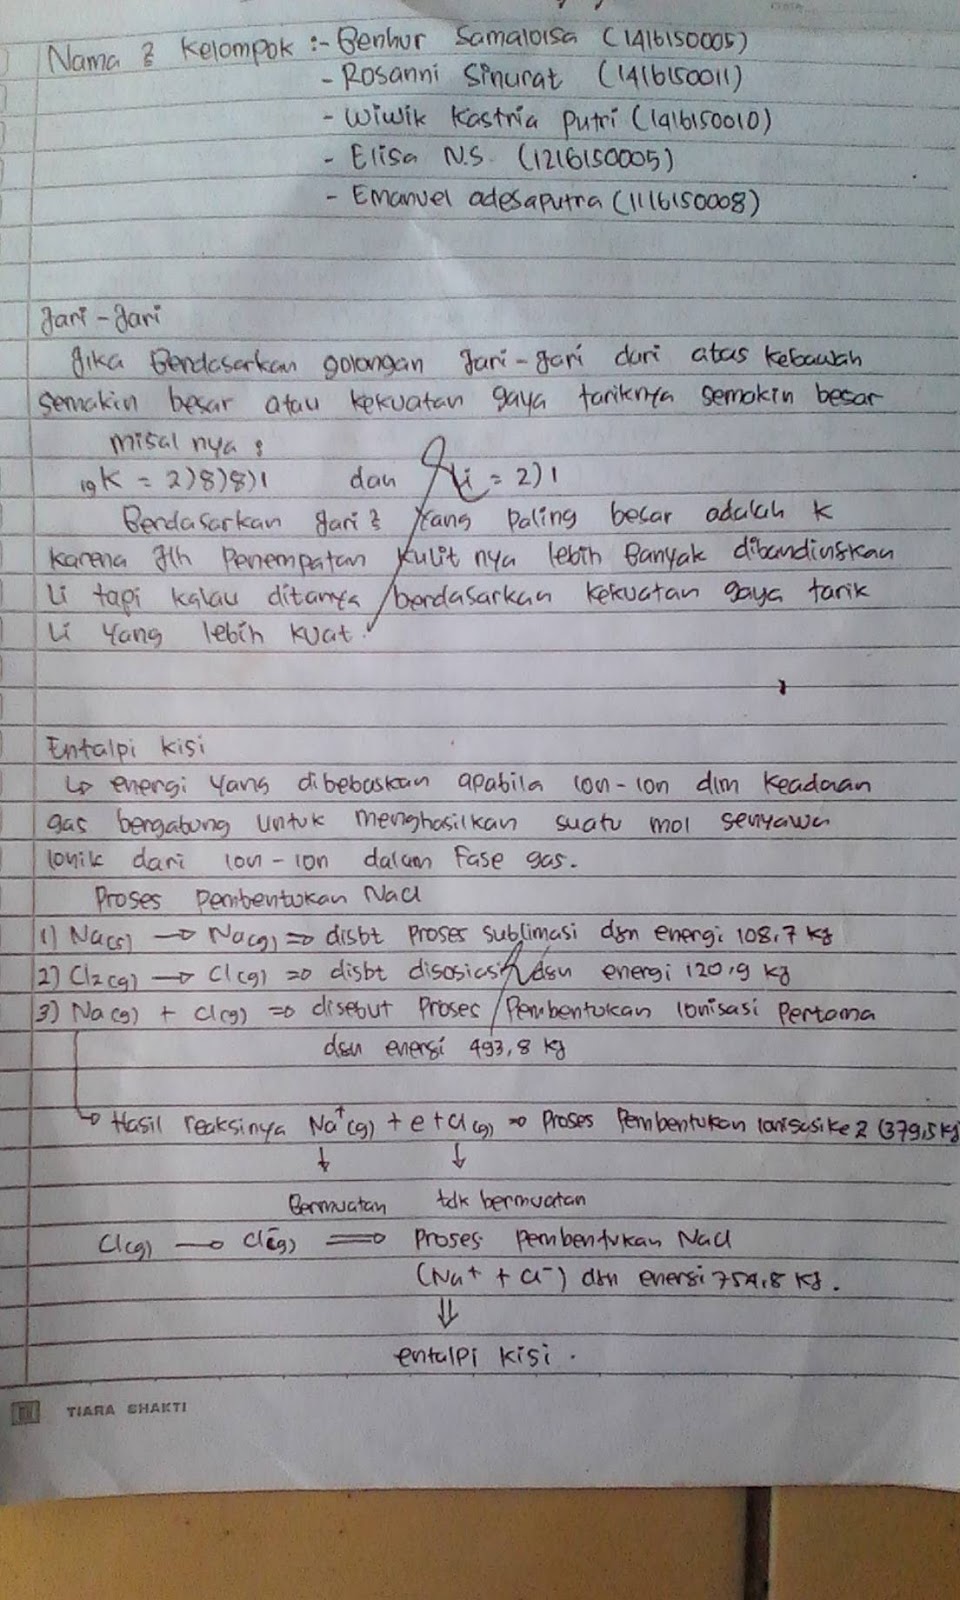 Nama2 Kelompok :- Benhur Samaloisa (1416150005)
- Rosanni Sinurat (1416150011)
- Wiwik Kastria Putri (1416150010)
- Elisa N.S. (1216150005)
- Emanuel adesaputra (1116150008)
Jari-Jari
Jika Berdasarkan golongan Jari-Jari dari atas kebawah
semakin besar atau kekuatan gaya tariknya semakin besar
misal nya :
19K = 2)8)8)1 dan Li = 2)1
Berdasarkan jari2 Yang paling besar adalah K
karena Jlh Penempatan kulit nya lebih Banyak dibandingkan
Li tapi kalau ditanya berdasarkan kekuatan gaya tarik
Li Yang lebih kuat.
Entalpi kisi
↳ energi yang dibebaskan apabila ion-ion dlm keadaan
gas bergabung untuk menghasilkan suatu mol senyawa
ionik dari ion-ion dalam Fase gas.
Proses Pembentukan NaCl
1) Na(s) → Na(g) ⇒ disbt Proses sublimasi dgn energi 108,7 kJ
2) Cl2(g) → Cl(g) ⇒ disbt disosiasi dgn energi 120,9 kJ
3) Na(g) + Cl(g) ⇒ disebut Proses Pembentukan Ionisasi Pertama
dgn energi 493,8 kJ
↳ Hasil reaksinya Na+(g) + e + Cl(g) ⇒ Proses Pembentukan Ionisasi ke 2 (379,5 kJ
↓ ↓
Bermuatan tdk bermuatan
Cl(g) → Cl-(g) ⇒ Proses Pembentukan NaCl
(Na+ + Cl-) dgn energi 754,8 KJ.
⇓
entalpi kisi.
TIARA SHAKTI